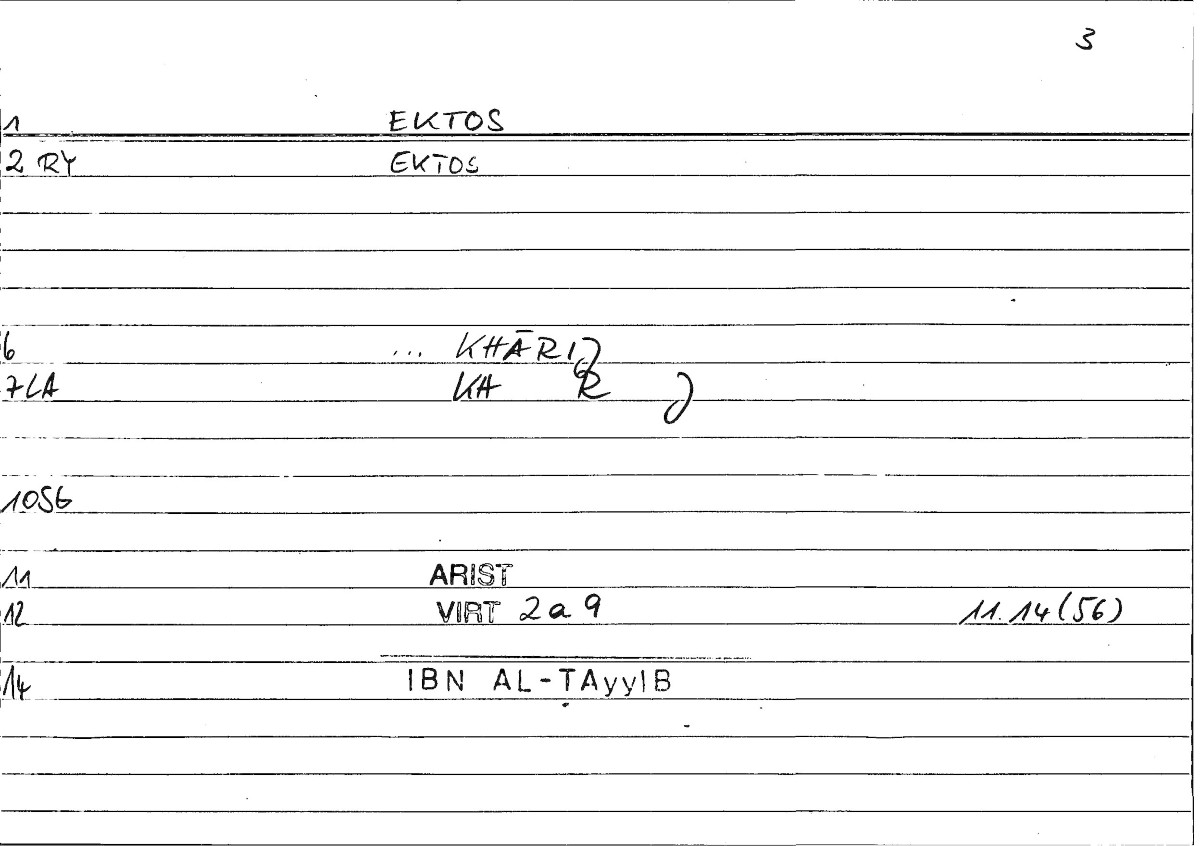 3
1 EKTOS
2 RY EKTOS
6 ... KHĀRIJ
7 LA KH R J
10SG
11 ARIST
12 VIRT 2a9 11.14(56)
14 IBN AL-ṬAyyIB